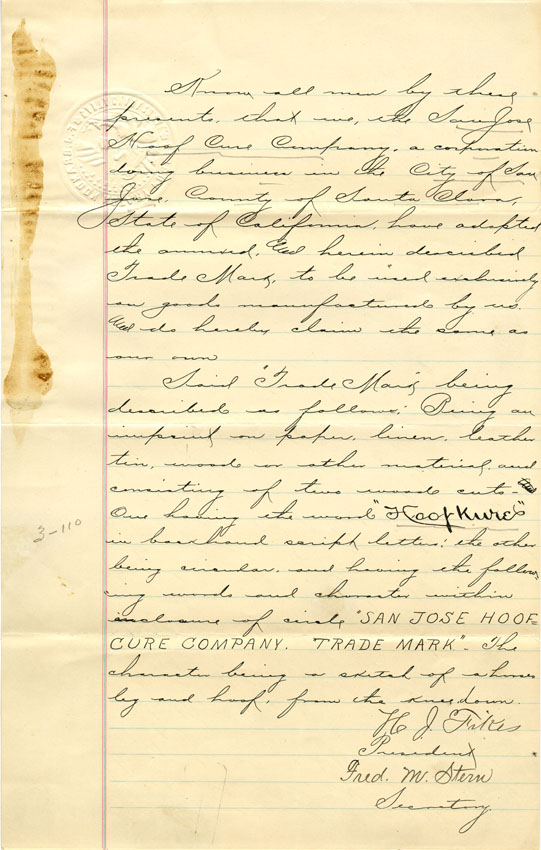 Know all men by these
presents, that we, the San Jose
Hoof Cure Company, a corporation
doing business in the City of San
Jose, County of Santa Clara,
State of California, have adopted
the annexed, and herein described
Trade Mark, to be used exclusively
on goods manufactured by us.
and do hereby claim the same as
our own
Said "Trade Mark" being
described as follows; Being an
imprint on paper, linen, leather
tin, wood or other material, and
consisting of two wood cuts-
One having the word "HoofKure"
in backhand script letter; the other
being circular, and having the follow-
ing words and character within
inclosure of circle "SAN JOSE HOOF-
CURE COMPANY. TRADE MARK". The
character being a sketch of a horses
leg and hoof, from the knee down.
H. J. Fikes
President
Fred. M. Stern
Secretary
3-110